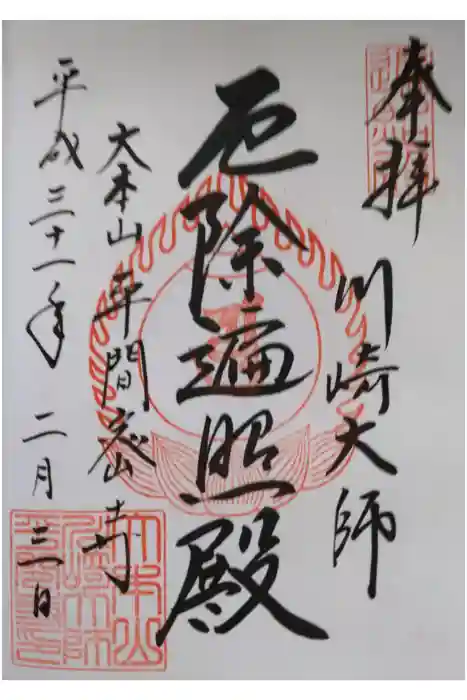 奉拝
川崎大師
厄除遍照殿
大本山平間寺
平成三十一年 二月 三日